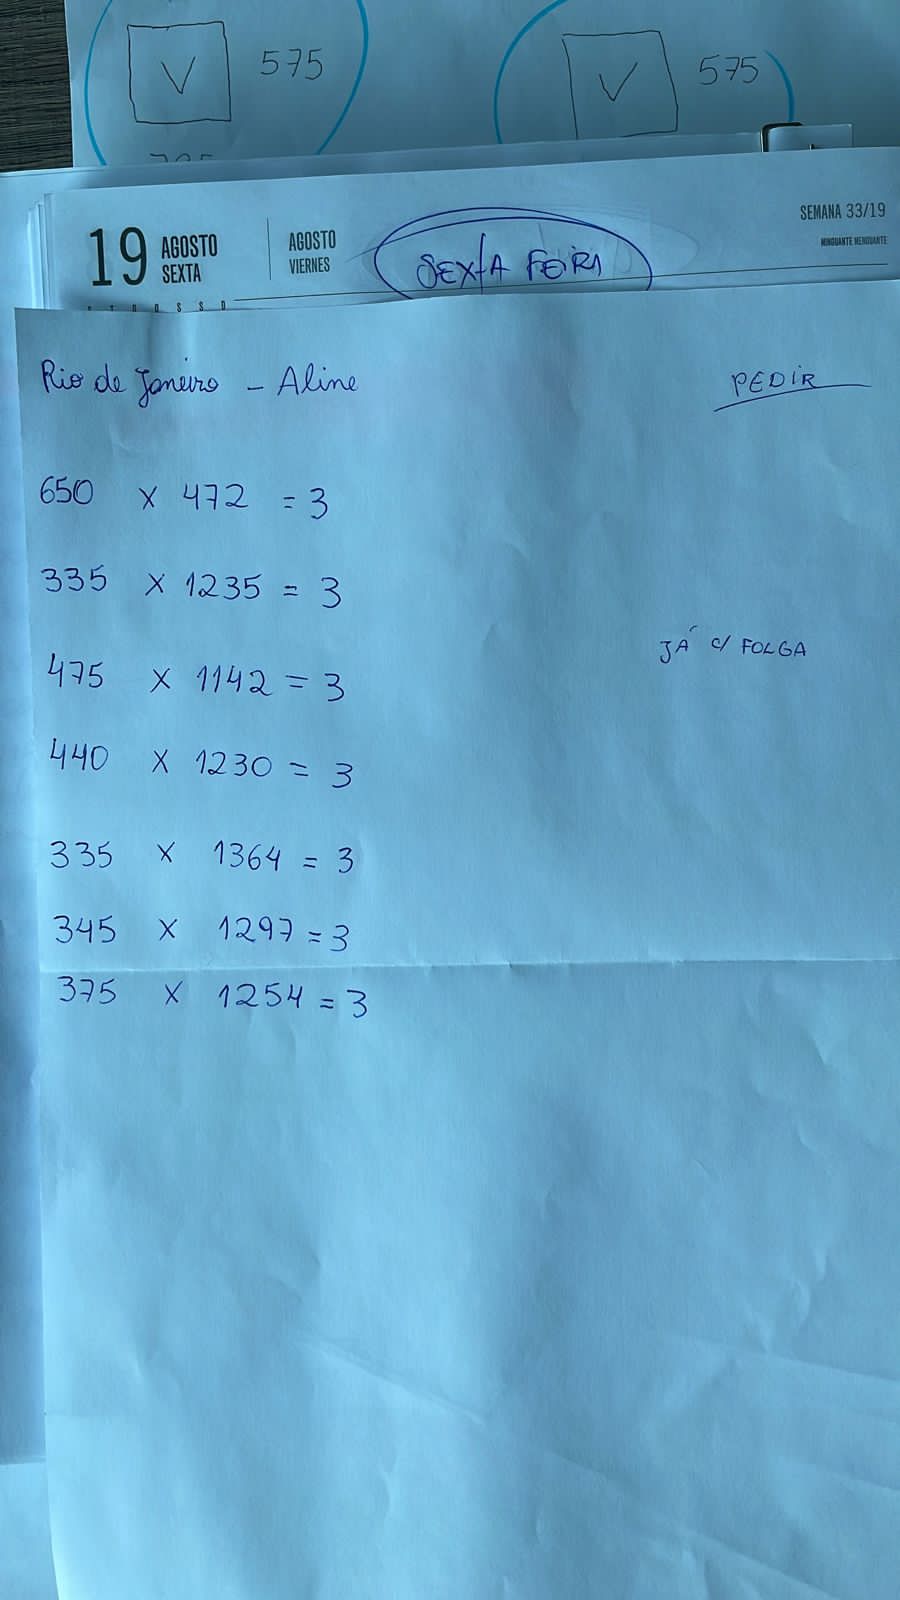 575 575
SEMANA 33/19
19 AGOSTO SEXTA AGOSTO VIERNES SEXTA FEIRA
MINGUANTE MENGUANTE
Rio de Janeiro - Aline PEDIR
650 X 472 = 3
335 X 1235 = 3
JÁ C/ FOLGA
475 X 1142 = 3
440 X 1230 = 3
335 X 1364 = 3
345 X 1297 = 3
375 X 1254 = 3